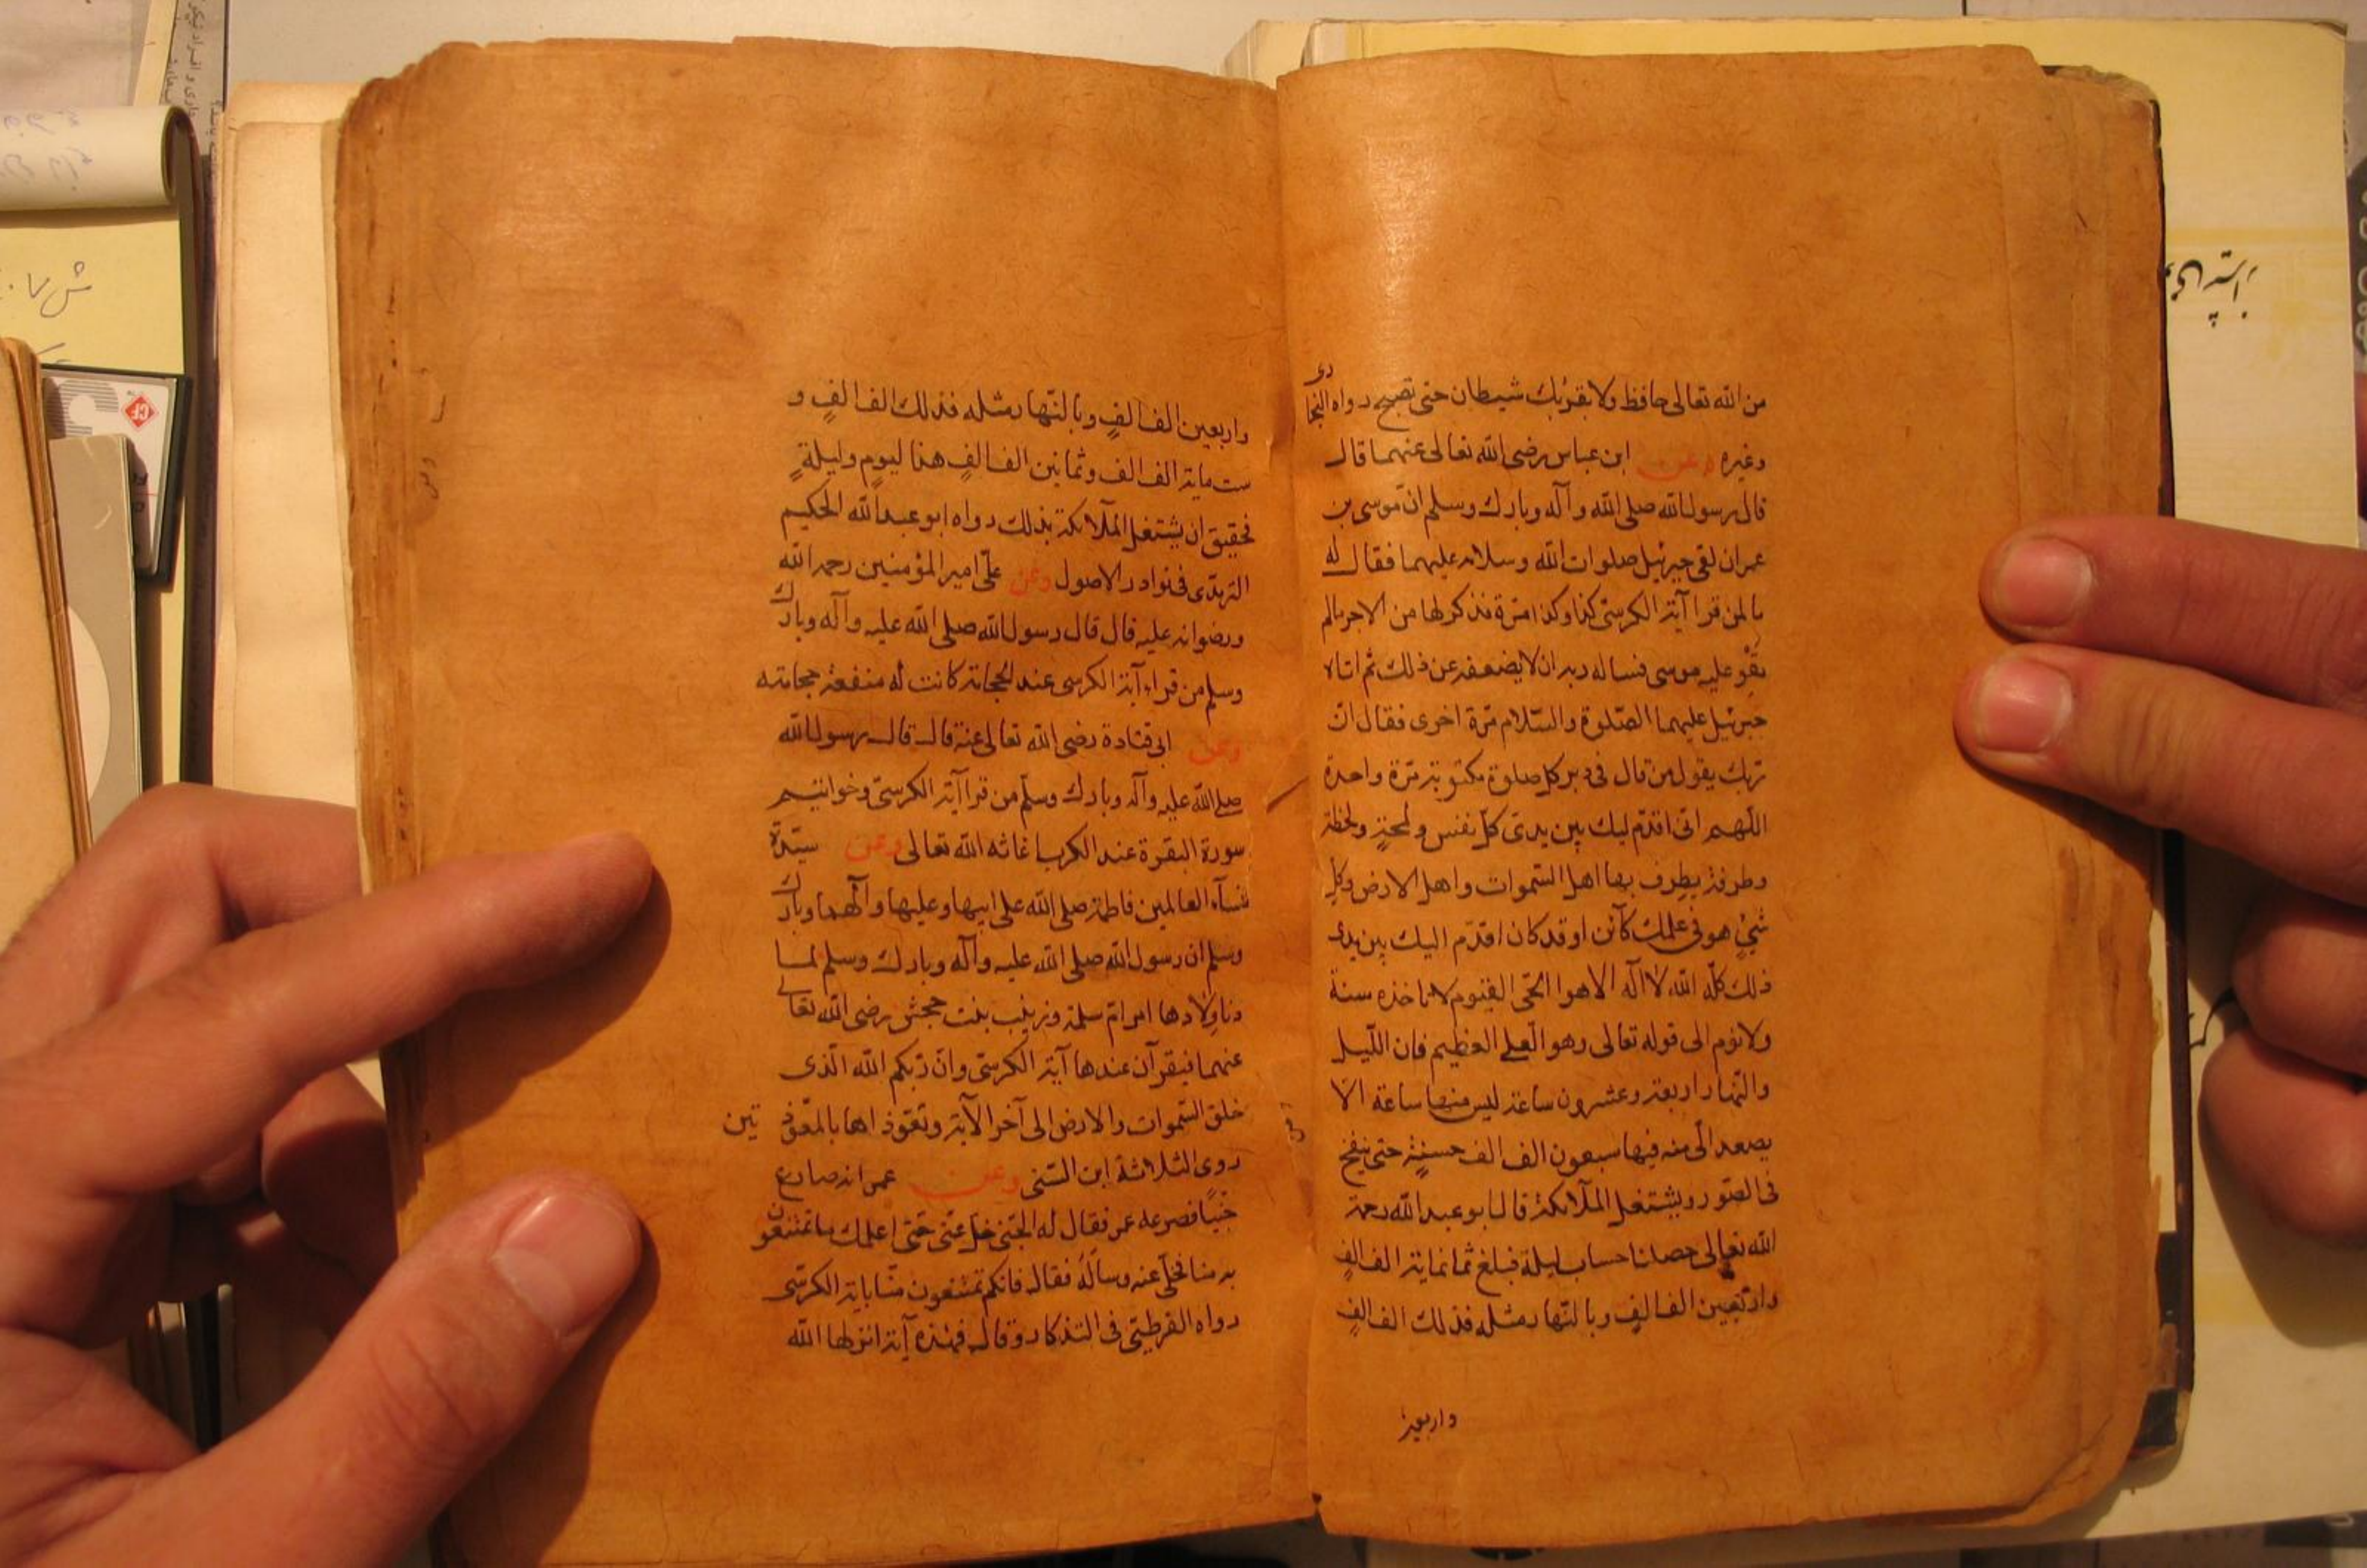 من الله تعالى حافظ ولا يقربك شيطان حتى تصبح رواه البخاري
وغيره وعن ابن عباس رضى الله تعالى عنهما قال
قال رسول الله صلى الله وآله وبارك وسلم ان موسى بن
عمران لقى جبرئيل صلوات الله وسلامه عليهما فقال له
ما لمن قرا آية الكرسى كذا وكذا مرة فذكر لها من الاجر مالم
يقو عليه موسى فسال ربه ان لا يضعفه عن ذلك ثم اتاه
جبرئيل عليهما الصلوة والسلام مرة اخرى فقال ان
ربك يقول من قال فى دبر كل صلوة مكتوبة مرة واحدة
اللهم انى اقدم ليك بين يدى كل نفس ولمحة ولحظة
وطرفة يطرف بها اهل السموات واهل الارض وكل
شيء هو فى علمك كآئن او قد كان اقدم اليك بين يدى
ذلك كله الله لا اله الا هو الحى القيوم لا تاخذه سنة
ولا نوم الى قوله تعالى وهو العلى العظيم فان الليل
والنهار اربعة وعشرون ساعة ليس منها ساعة الا
يصعد الى منه فيها سبعون الف الف حسنة حتى ينفخ
فى الصور ويشتغل الملآئكة قال ابو عبد الله رحمة
الله تعالى حساب ليلة فبلغ ثمانماية الف الف
واربعين الف الف وبالنهار مثله فذلك الف الف
واربعين
واربعين الف الف وبالنهار مثله فذلك الف الف و
ست ماية الف الف وثمانين الف الف هذا ليوم وليلة
فحقيق ان يشتغل الملآئكة بذلك رواه ابو عبد الله الحكيم
الترمذى فى نوادر الاصول وعن على امير المؤمنين رحمه الله
ورضوانه عليه قال قال رسول الله صلى الله عليه وآله وبارك
وسلم من قراء آية الكرسى عند الحجامة كانت له منفعة حجامته
وعن ابى قتادة رضى الله تعالى عنه قال قال رسول الله
صلى الله عليه وآله وبارك وسلم من قرا آية الكرسى وخواتيم
سورة البقرة عند الكرب اغاثه الله تعالى وعن سيدة
نسآء العالمين فاطمة صلى الله على ابيها وعليها وآلهما وبارك
وسلم ان رسول الله صلى الله عليه وآله وبارك وسلم لما
دنا ولادها امر ام سلمة وزينب بنت جحش رضى الله تعالى
عنهما فيقرآن عندها آية الكرسى وان ربكم الله الذى
خلق السموات والارض الى آخر الآية وتعوذ اها بالمعوذتين
روى الثلاثة ابن السنى وعن عمر انه صارع
جنيا فصرعه عمر فقال له الجنى خل عنى حتى اعلمك ما تمتنعون
به منا فخلى عنه وساله فقال فانكم تمتنعون منا باية الكرسى
رواه القرطبى فى التذكار وقال فهذه آية انزلها الله